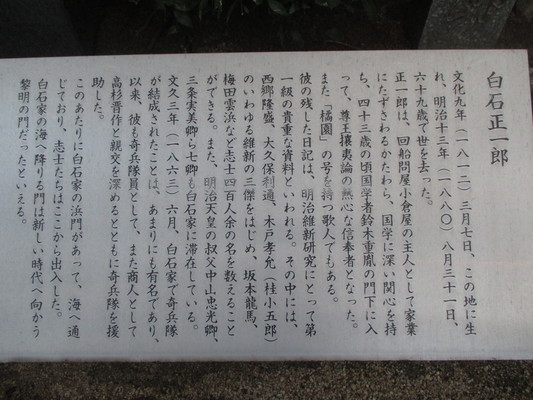 白石正一郎
文化九年（一八一二）三月七日、この地に生
れ、明治十三年（一八八〇）八月三十一日、
六十九歳で世を去った。
正一郎は、回船問屋小倉屋の主人として家業
にたずさわるかたわら、国学に深い関心を持
ち、四十三歳の頃国学者鈴木重胤の門下に入
って、尊王攘夷論の熱心な信奉者となった。
また「橘園」の号を持つ歌人でもある。
彼の残した日記は、明治維新研究にとって第
一級の貴重な資料といわれる。その中には、
西郷隆盛、大久保利通、木戸孝允（桂小五郎）
のいわゆる維新の三傑をはじめ、坂本龍馬、
梅田雲浜など志士四百人余の名を数えること
ができる。また、明治天皇の叔父中山忠光卿、
三条実美卿ら七卿も白石家に滞在している。
文久三年（一八六三）六月、白石家で奇兵隊
が結成されたことは、あまりにも有名であり、
以来、彼も奇兵隊員として、また商人として
高杉晋作と親交を深めるとともに奇兵隊を援
助した。
このあたりに白石家の浜門があって、海へ通
じており、志士たちはここから出入した。
白石家の海へ降りる門は新しい時代へ向かう
黎明の門だったといえる。